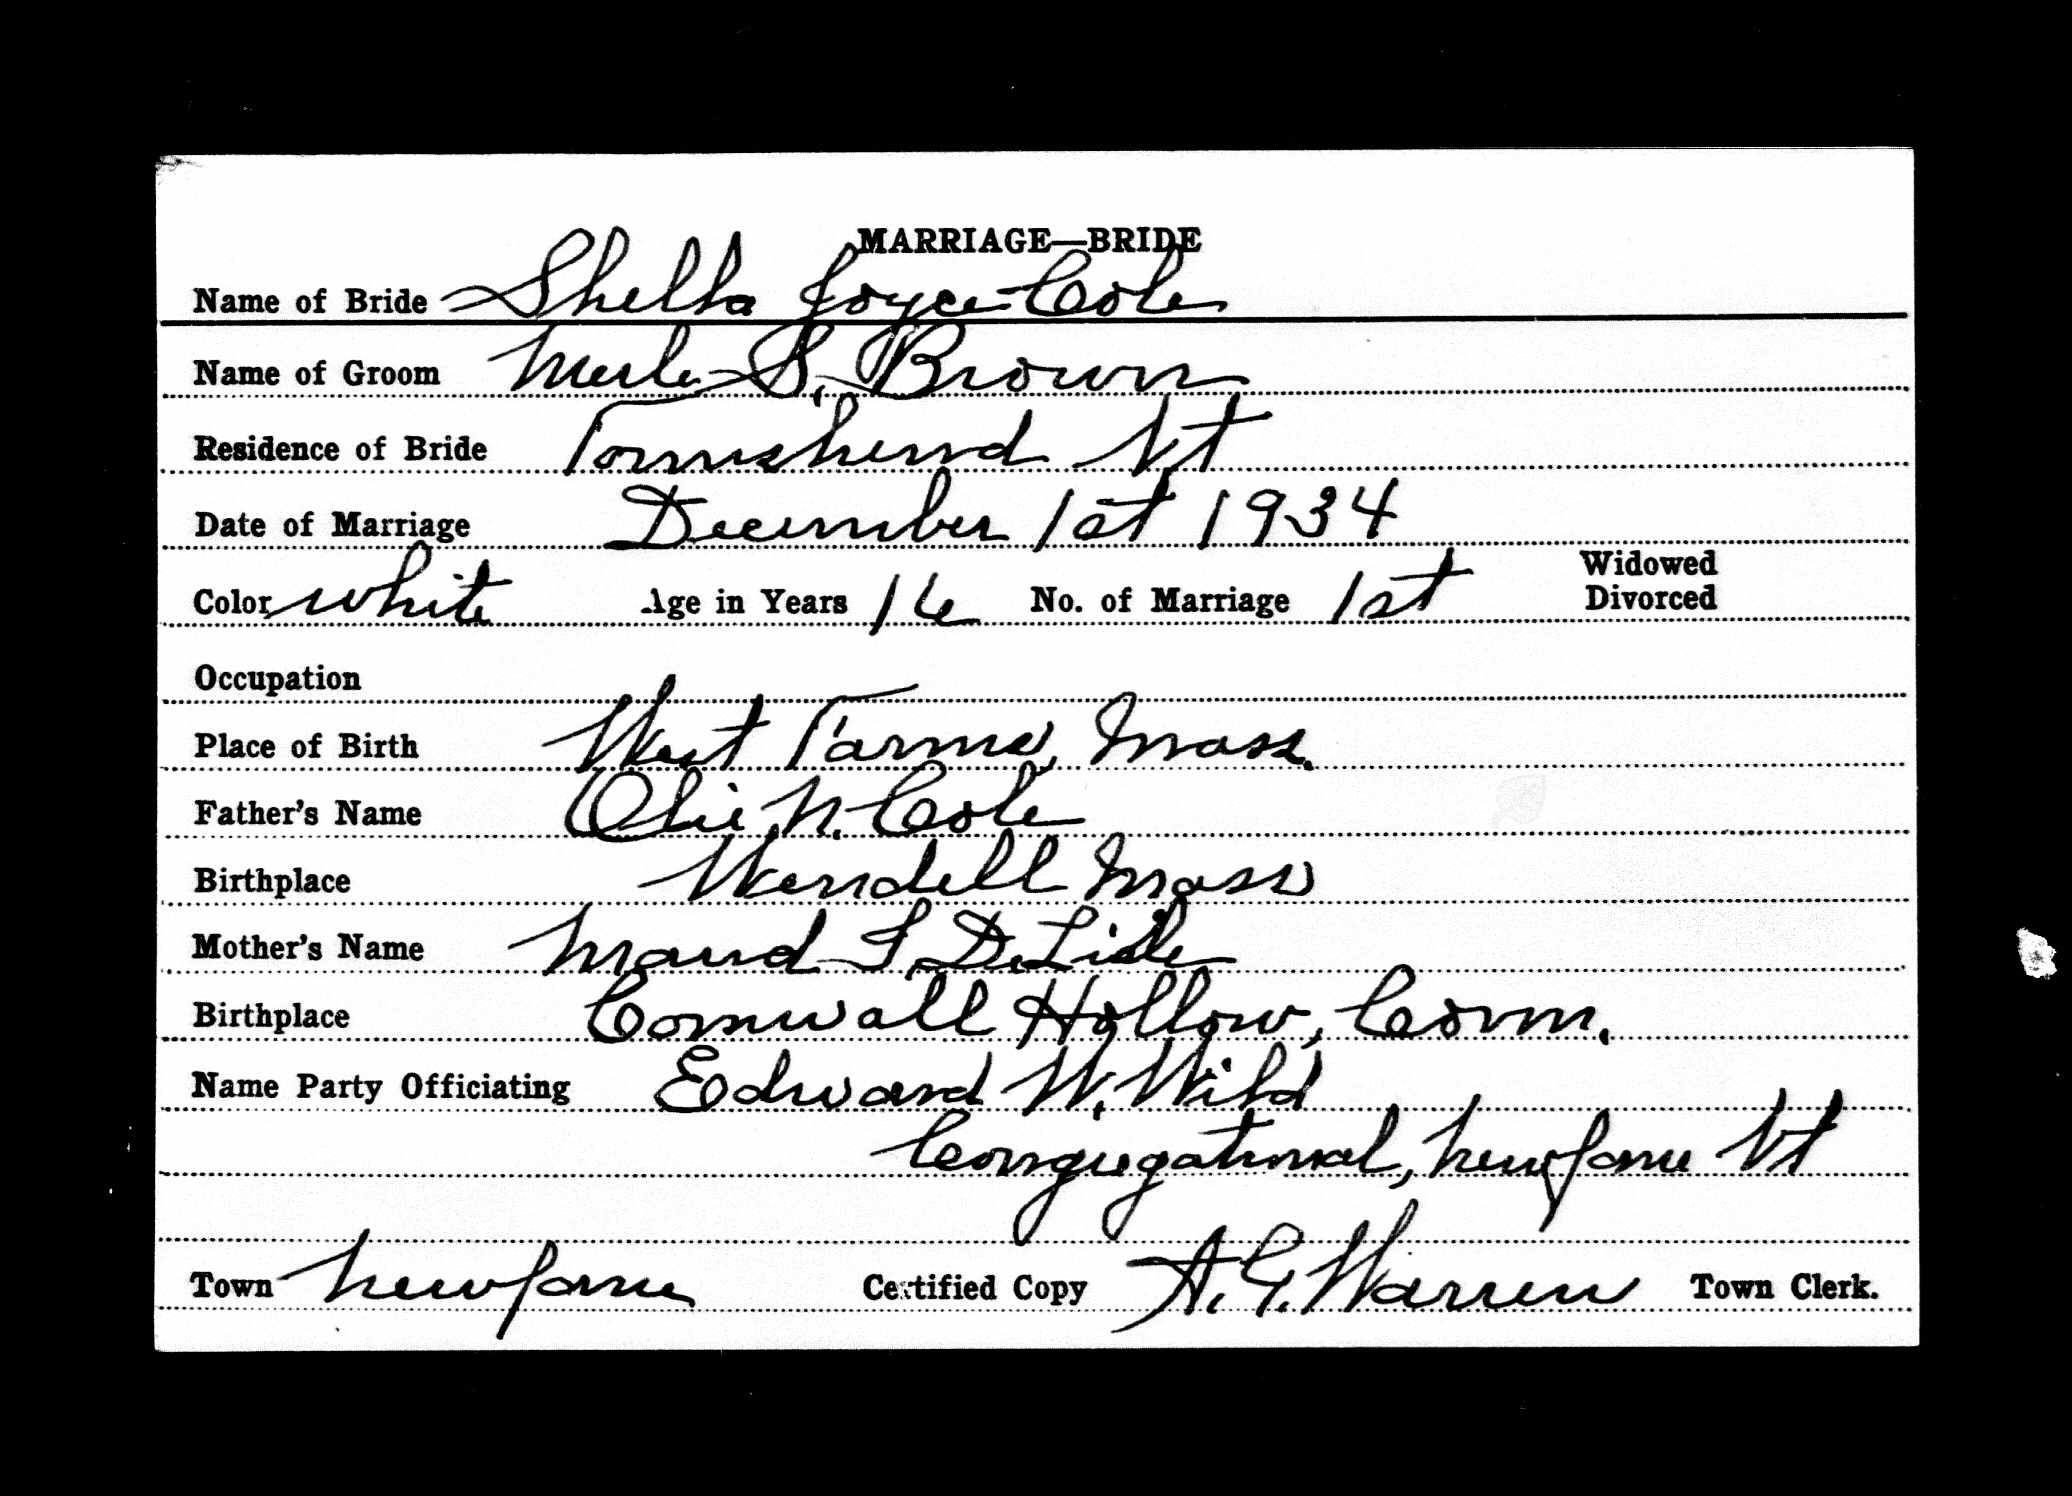 MARRIAGE—BRIDE
Name of Bride Shella Joyce Cole
Name of Groom Merle S. Brown
Residence of Bride Townshend Vt
Date of Marriage December 1st 1934
Color white Age in Years 16 No. of Marriage 1st Widowed Divorced
Occupation
Place of Birth West Farms, Mass.
Father's Name N. Cole
Birthplace Wendell Mass
Mother's Name Maud DeLisle
Birthplace Cornwall Hollow, Conn.
Name Party Officiating Edward W. Wild
Congregational, Newfane Vt
Town Newfane Certified Copy A. G. Warren Town Clerk.